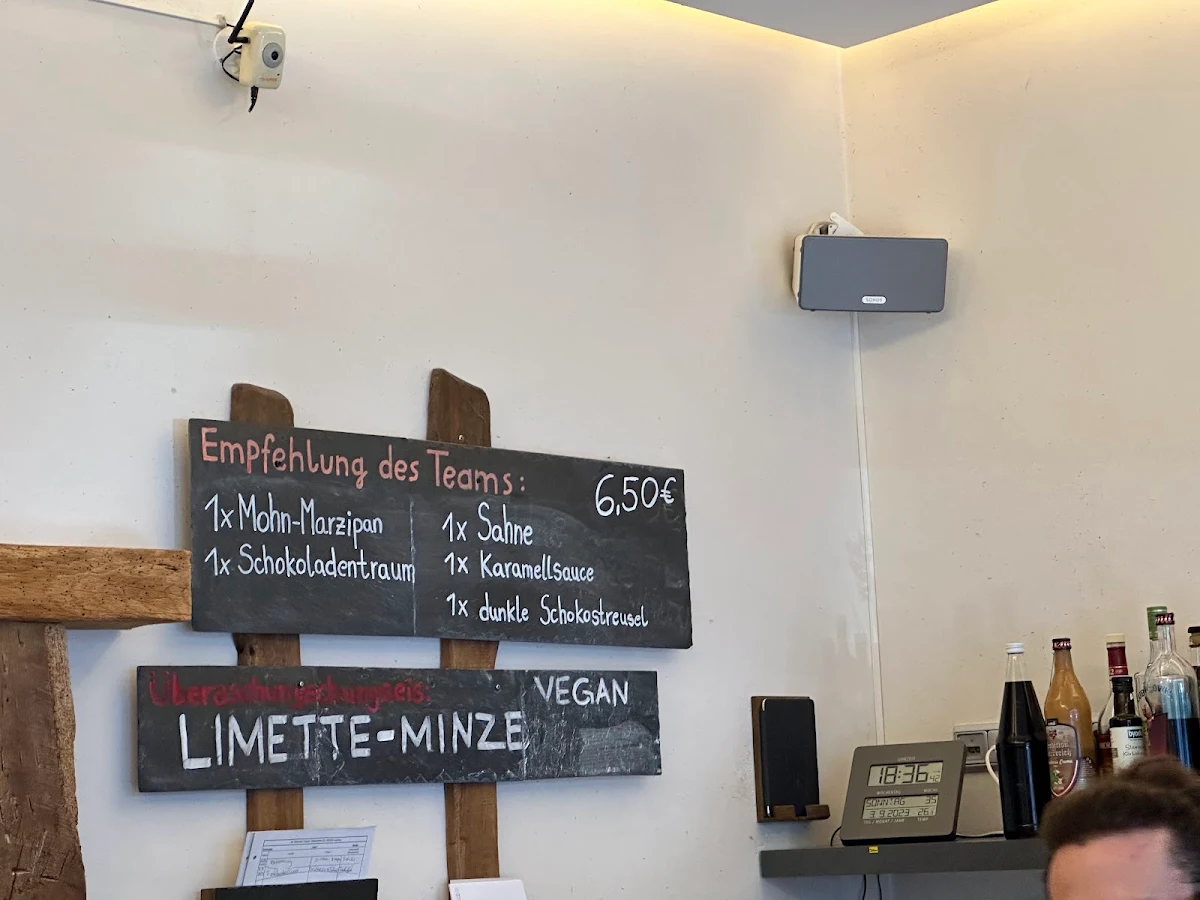 SONOS
Empfehlung des Teams:
6,50€
1x Mohn-Marzipan
1x Schokoladentraum
1x Sahne
1x Karamellsauce
1x dunkle Schokostreusel
VEGAN
LIMETTE-MINZE
18:36 42
WOCHENTAG
SONNTAG 35
3 9 2023 26.1